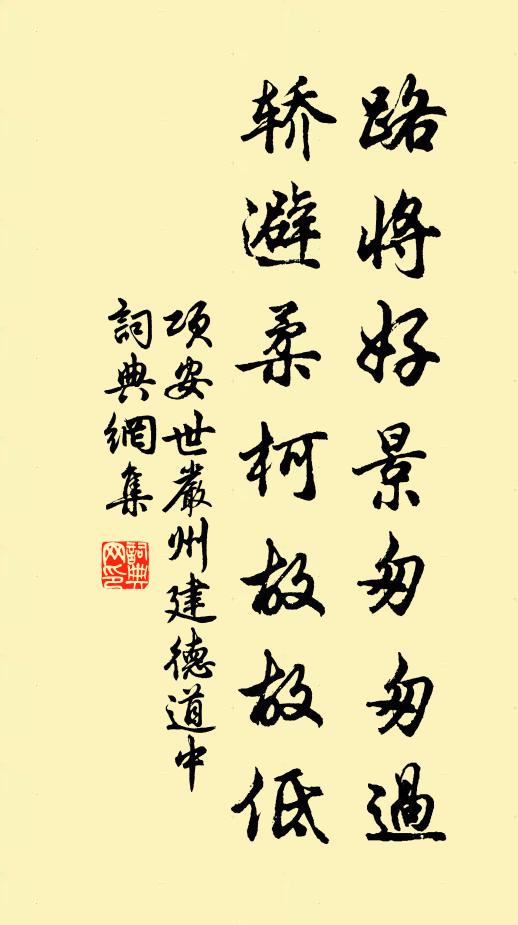 路將好景匆匆過
轿避柔柯故故低
項安世嚴州建德道中
詞典網集
詞典网印